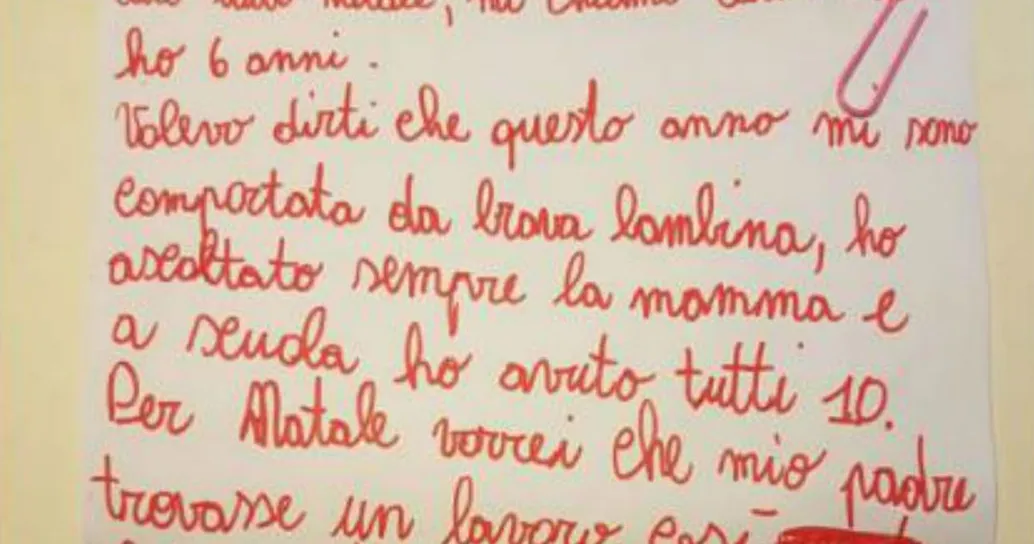 caro babbo natale, mi chiamo
ho 6 anni.
Volevo dirti che questo anno mi sono
comportata da brava bambina, ho
ascoltato sempre la mamma e
a scuola ho avuto tutti 10.
Per Natale vorrei che mio padre
trovasse un lavoro così